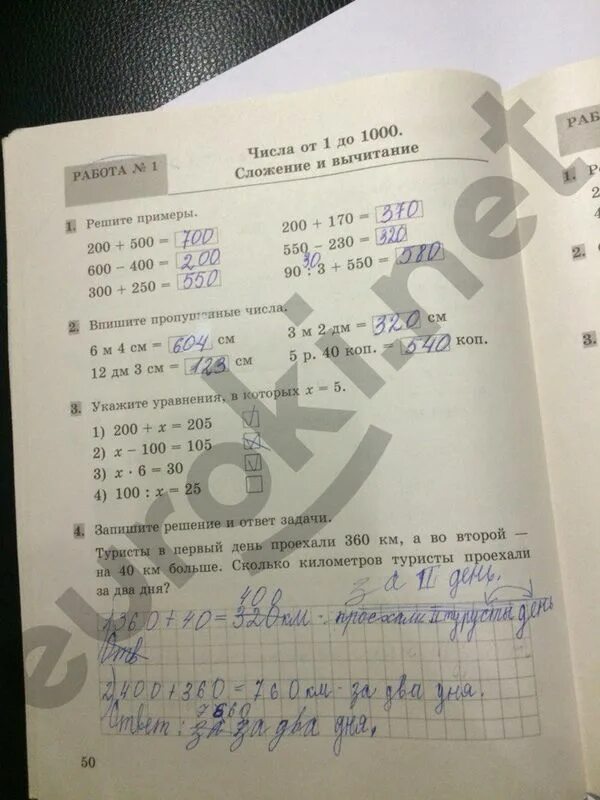 РАБОТА № 1
Числа от 1 до 1000.
Сложение и вычитание
1. Решите примеры.
200 + 500 = 700
600 – 400 = 200
300 + 250 = 550
200 + 170 = 370
550 – 230 = 320
30
90 : 3 + 550 = 580
2. Впишите пропущенные числа.
6 м 4 см = 604 см
12 дм 3 см = 123 см
3 м 2 дм = 320 см
5 р. 40 коп. = 540 коп.
3. Укажите уравнения, в которых x = 5.
1) 200 + x = 205
2) x – 100 = 105
3) x · 6 = 30
4) 100 : x = 25
4. Запишите решение и ответ задачи.
Туристы в первый день проехали 360 км, а во второй —
на 40 км больше. Сколько километров туристы проехали
за два дня?
400 за II день.
1) 360 + 40 = 320 км - проехали II турусты день
Отв
2) 400 + 360 = 760 км - за два дня.
760
Ответ: за за два дня.
50
РАБ
1. Р
2.
3.
euroki.net